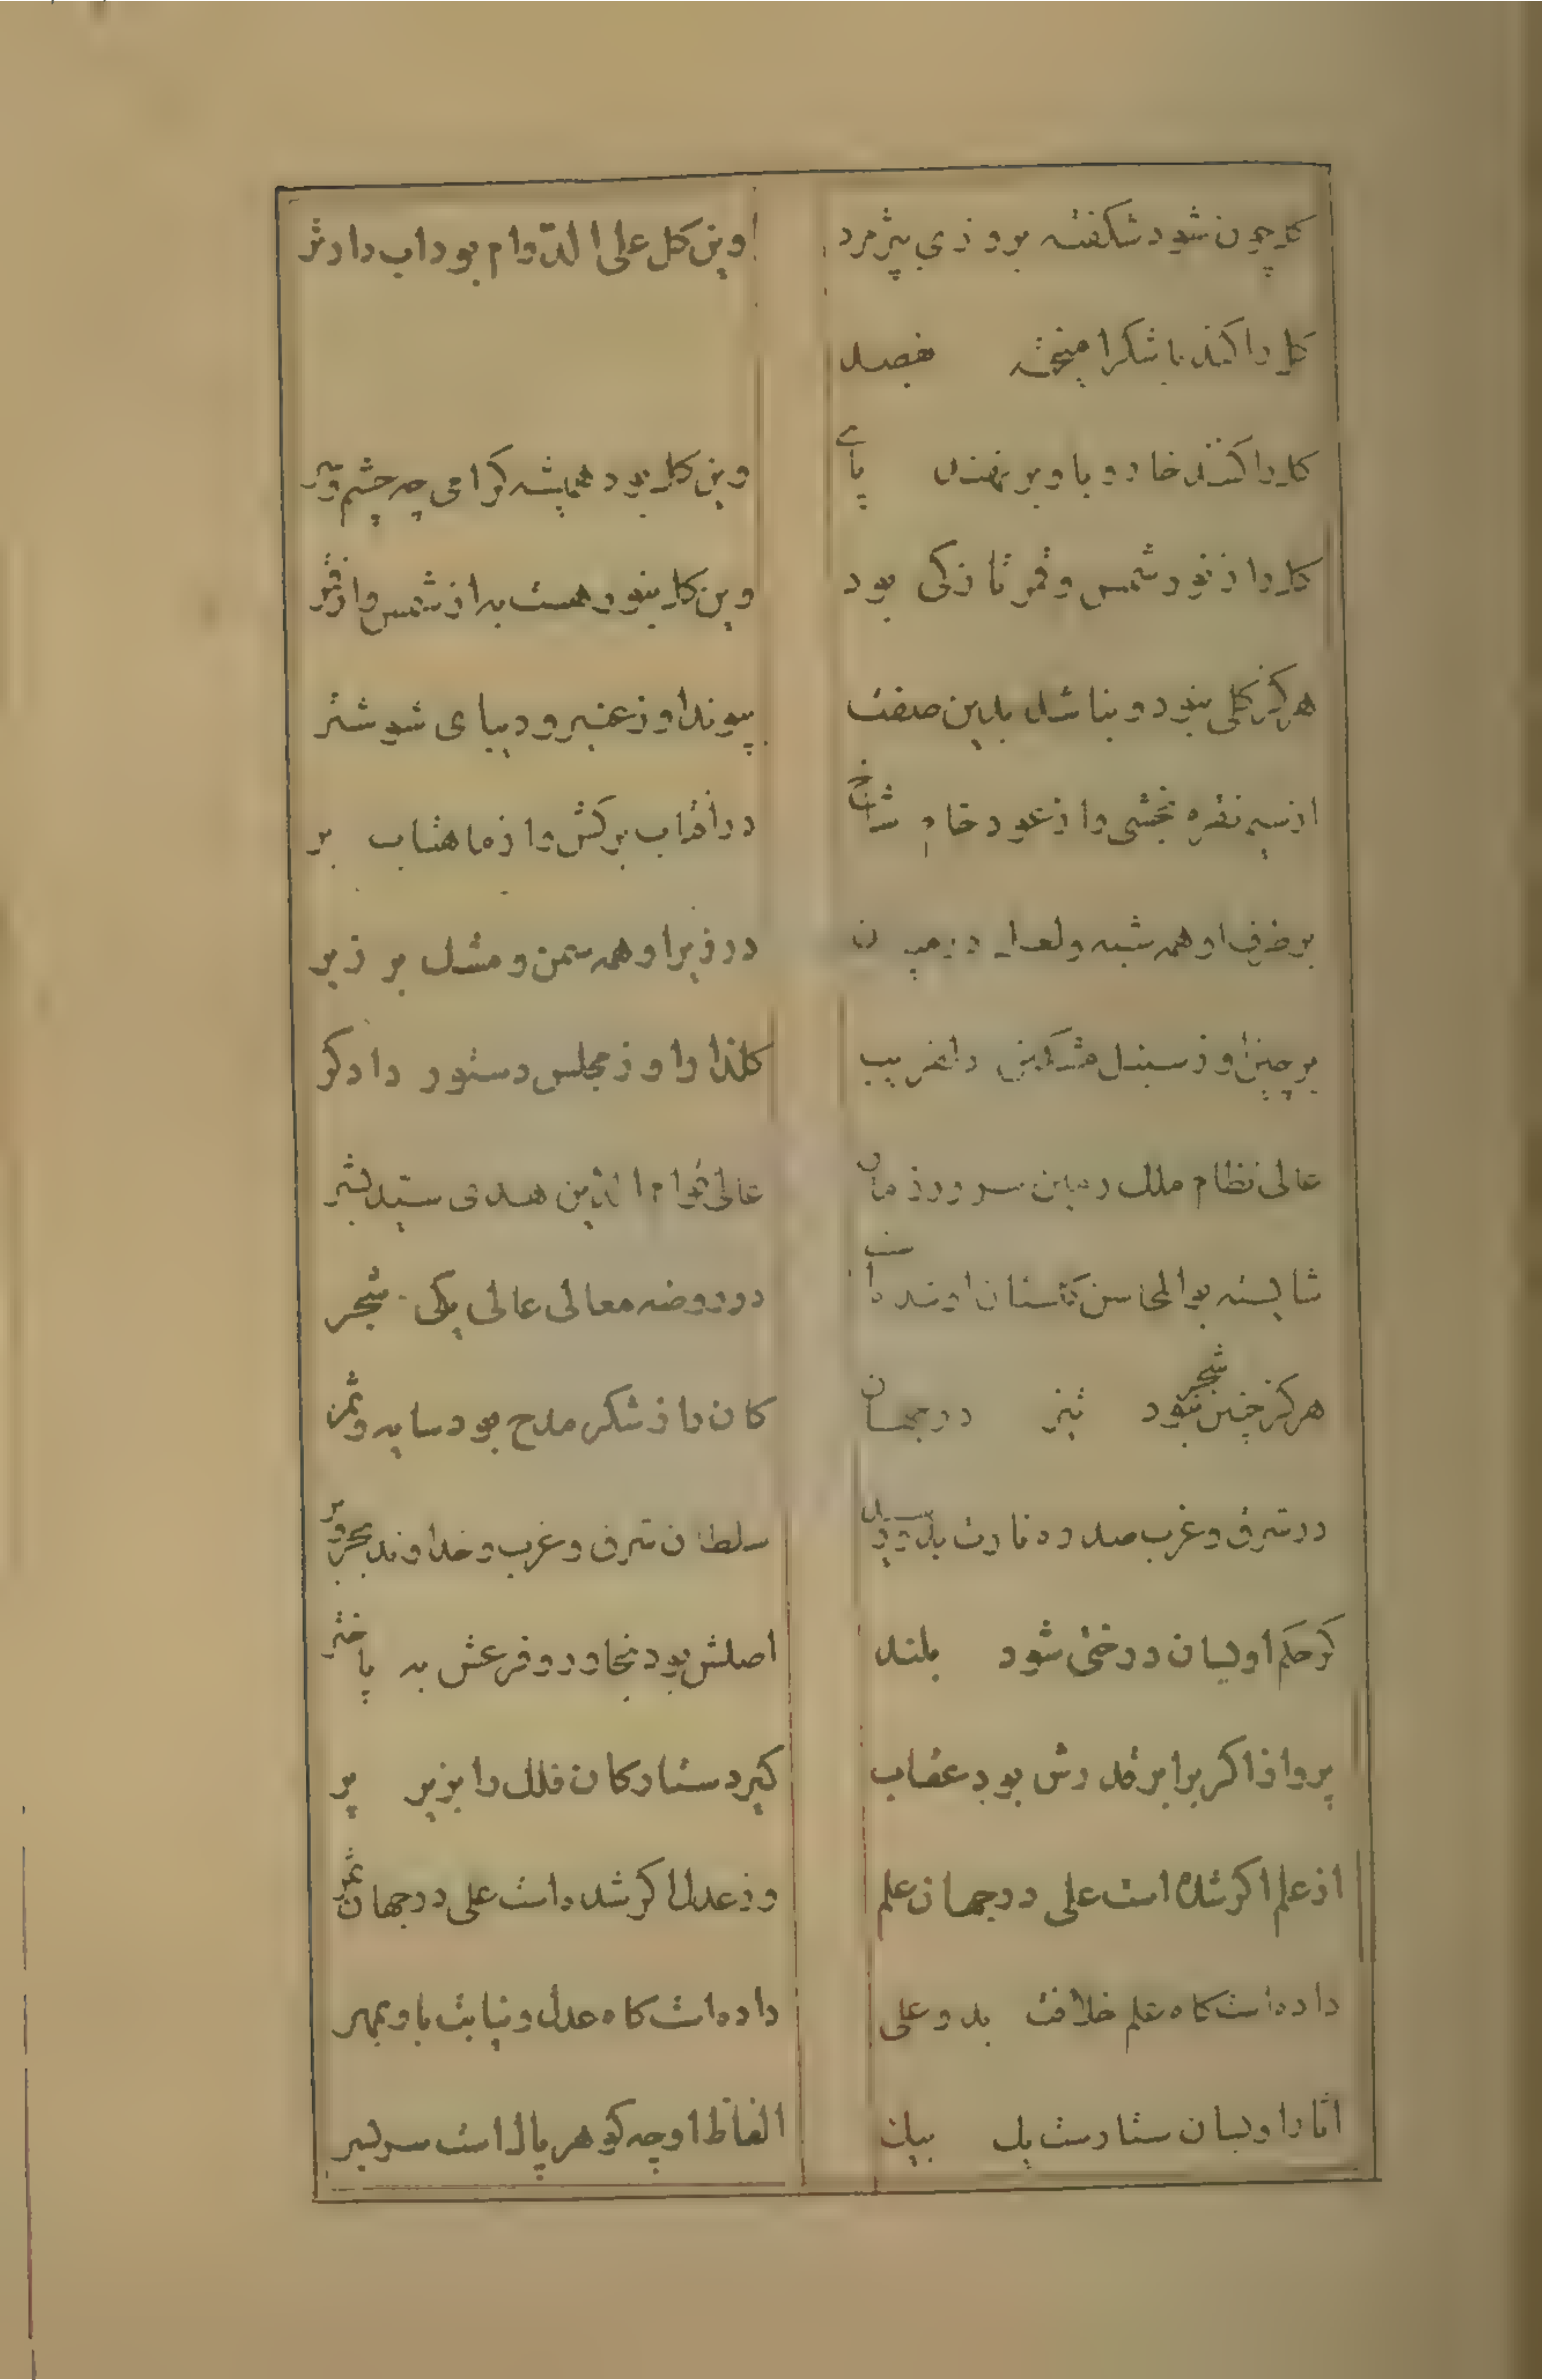 کل چون شود شکفته بروزی بپژمرد
وین کل علی الدّوام بود اب دار تر
کل را کنند با شکر امیخته بقصد
کل را کنند خار و با و بر نهند پای
وین کل بود همیشه کرامی چه چشم و سر
کل را ز نور شمس و قمر تازکی بود
وین کل بنور هست به از شمس و از قمر
هرکز کلی نبود و نباشد بدین صفت
پیوند او ز عنبر و دیبای شوشتر
از سیم نقره بخشی و از عود خام شاخ
در افتاب برکش و از ماهتاب بر
بر طرف او همه شبه و لعل در میان
در زیر او همه سمن و مشک بر زبر
بر چین او ز سنبل مشکین دلفریب
کلزار او ز مجلس دستور دادکر
عالی نظام ملک و دین سرور زمان
عالی قوام الدین هدی سیّد بشر
شایسته بوالمحاسن کاستان او شده است
در روضه معالی عالی یکی شجر
هرکز چنین شجر نبود نیز در جهان
کان را ز شکر مدح بود سایه و ثمر
در شرق و غرب صدر وزارت بدو سپرد
سلطان شرق و غرب و خداوند بحر و بر
کر حکم او بسان درختی شود بلند
اصلش بود بخاور و فرعش به باختر
پرواز اکر برابر قدرش بود عقاب
کیرد ستارکان فلک را بزیر پر
از علم اکر شده است علی در جهان علم
وز عدل اکر شده است علی در جهان عمر
داده است کاه علم خلافت بدو علی
داده است کاه عدل و نیابت باو عمر
اثار او بسان ستارست بیک بیک
الفاظ او چه کوهر پاک است سر بسر